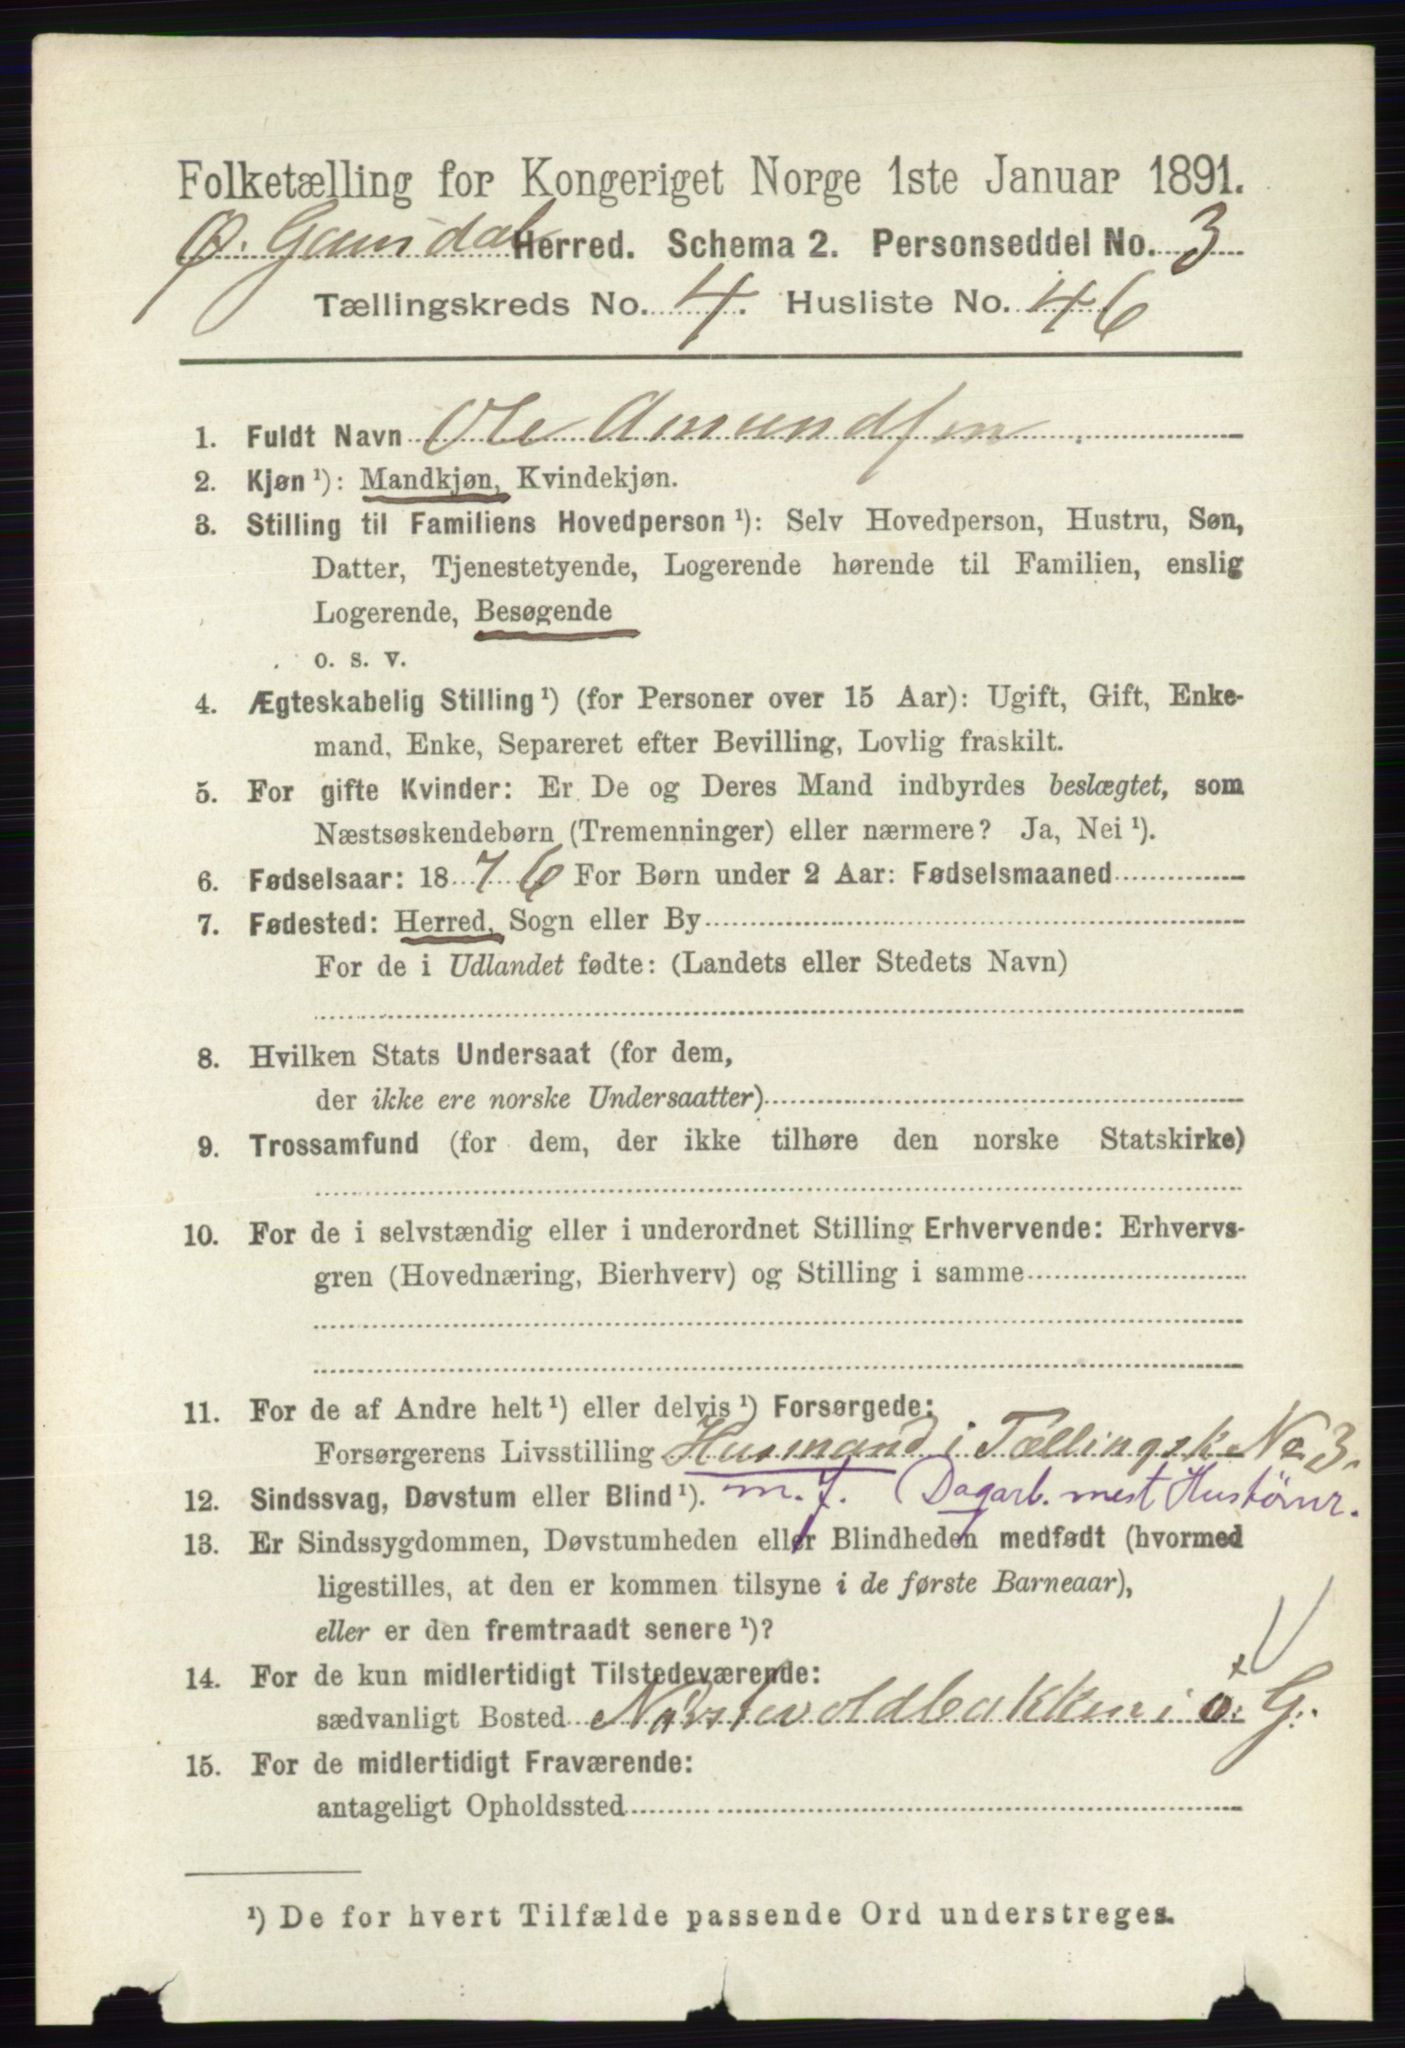 Folketælling for Kongeriget Norge 1ste Januar 1891.
Ø. Gausdal Herred. Schema 2. Personseddel No. 3
Tællingskreds No. 4. Husliste No. 46
1. Fuldt Navn Ole Amundsen
2. Kjøn ¹): Mandkjøn, Kvindekjøn.
3. Stilling til Familiens Hovedperson ¹): Selv Hovedperson, Hustru, Søn,
Datter, Tjenestetyende, Logerende hørende til Familien, enslig
Logerende, Besøgende
o. s. v.
4. Ægteskabelig Stilling ¹) (for Personer over 15 Aar): Ugift, Gift, Enke-
mand, Enke, Separeret efter Bevilling, Lovlig fraskilt.
5. For gifte Kvinder: Er De og Deres Mand indbyrdes beslægtet, som
Næstsøskendebørn (Tremenninger) eller nærmere? Ja, Nei ¹).
6. Fødselsaar: 1876 For Børn under 2 Aar: Fødselsmaaned
7. Fødested: Herred, Sogn eller By
For de i Udlandet fødte: (Landets eller Stedets Navn)
8. Hvilken Stats Undersaat (for dem,
der ikke ere norske Undersaatter)
9. Trossamfund (for dem, der ikke tilhøre den norske Statskirke)
10. For de i selvstændig eller i underordnet Stilling Erhvervende: Erhvervs-
gren (Hovednæring, Bierhverv) og Stilling i samme
11. For de af Andre helt ¹) eller delvis ¹) Forsørgede:
Forsørgerens Livsstilling Husmand i Tællingsk No 3.
12. Sindssvag, Døvstum eller Blind ¹). m. J. Dagarb. mest Hustömr.
13. Er Sindssygdommen, Døvstumheden eller Blindheden medfødt (hvormed
ligestilles, at den er kommen tilsyne i de første Barneaar),
eller er den fremtraadt senere ¹)?
14. For de kun midlertidigt Tilstedeværende:
sædvanligt Bosted i Ö. G.
15. For de midlertidigt Fraværende:
antageligt Opholdssted
¹) De for hvert Tilfælde passende Ord understreges.